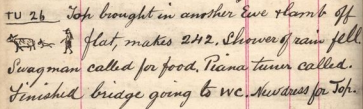 TU 26 Top brought in another Ewe & lamb off
flat, makes 242. Shower of rain fell
Swagman called for food. Piana tuner called.
Finished bridge going to WC. New dress for Top.